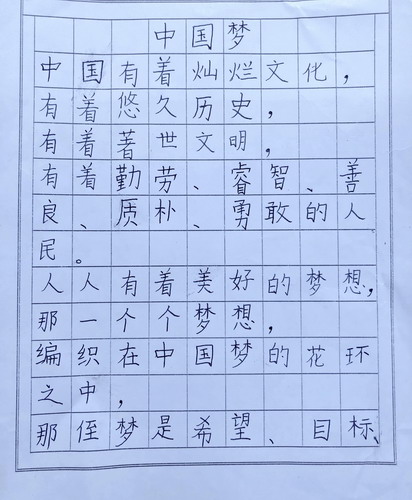 中国梦
中国有着灿烂文化，
有着悠久历史，
有着著世文明，
有着勤劳、睿智、善
良、质朴、勇敢的人
民。
人人有着美好的梦想，
那一个个梦想，
编织在中国梦的花环
之中，
那侄梦是希望、目标、